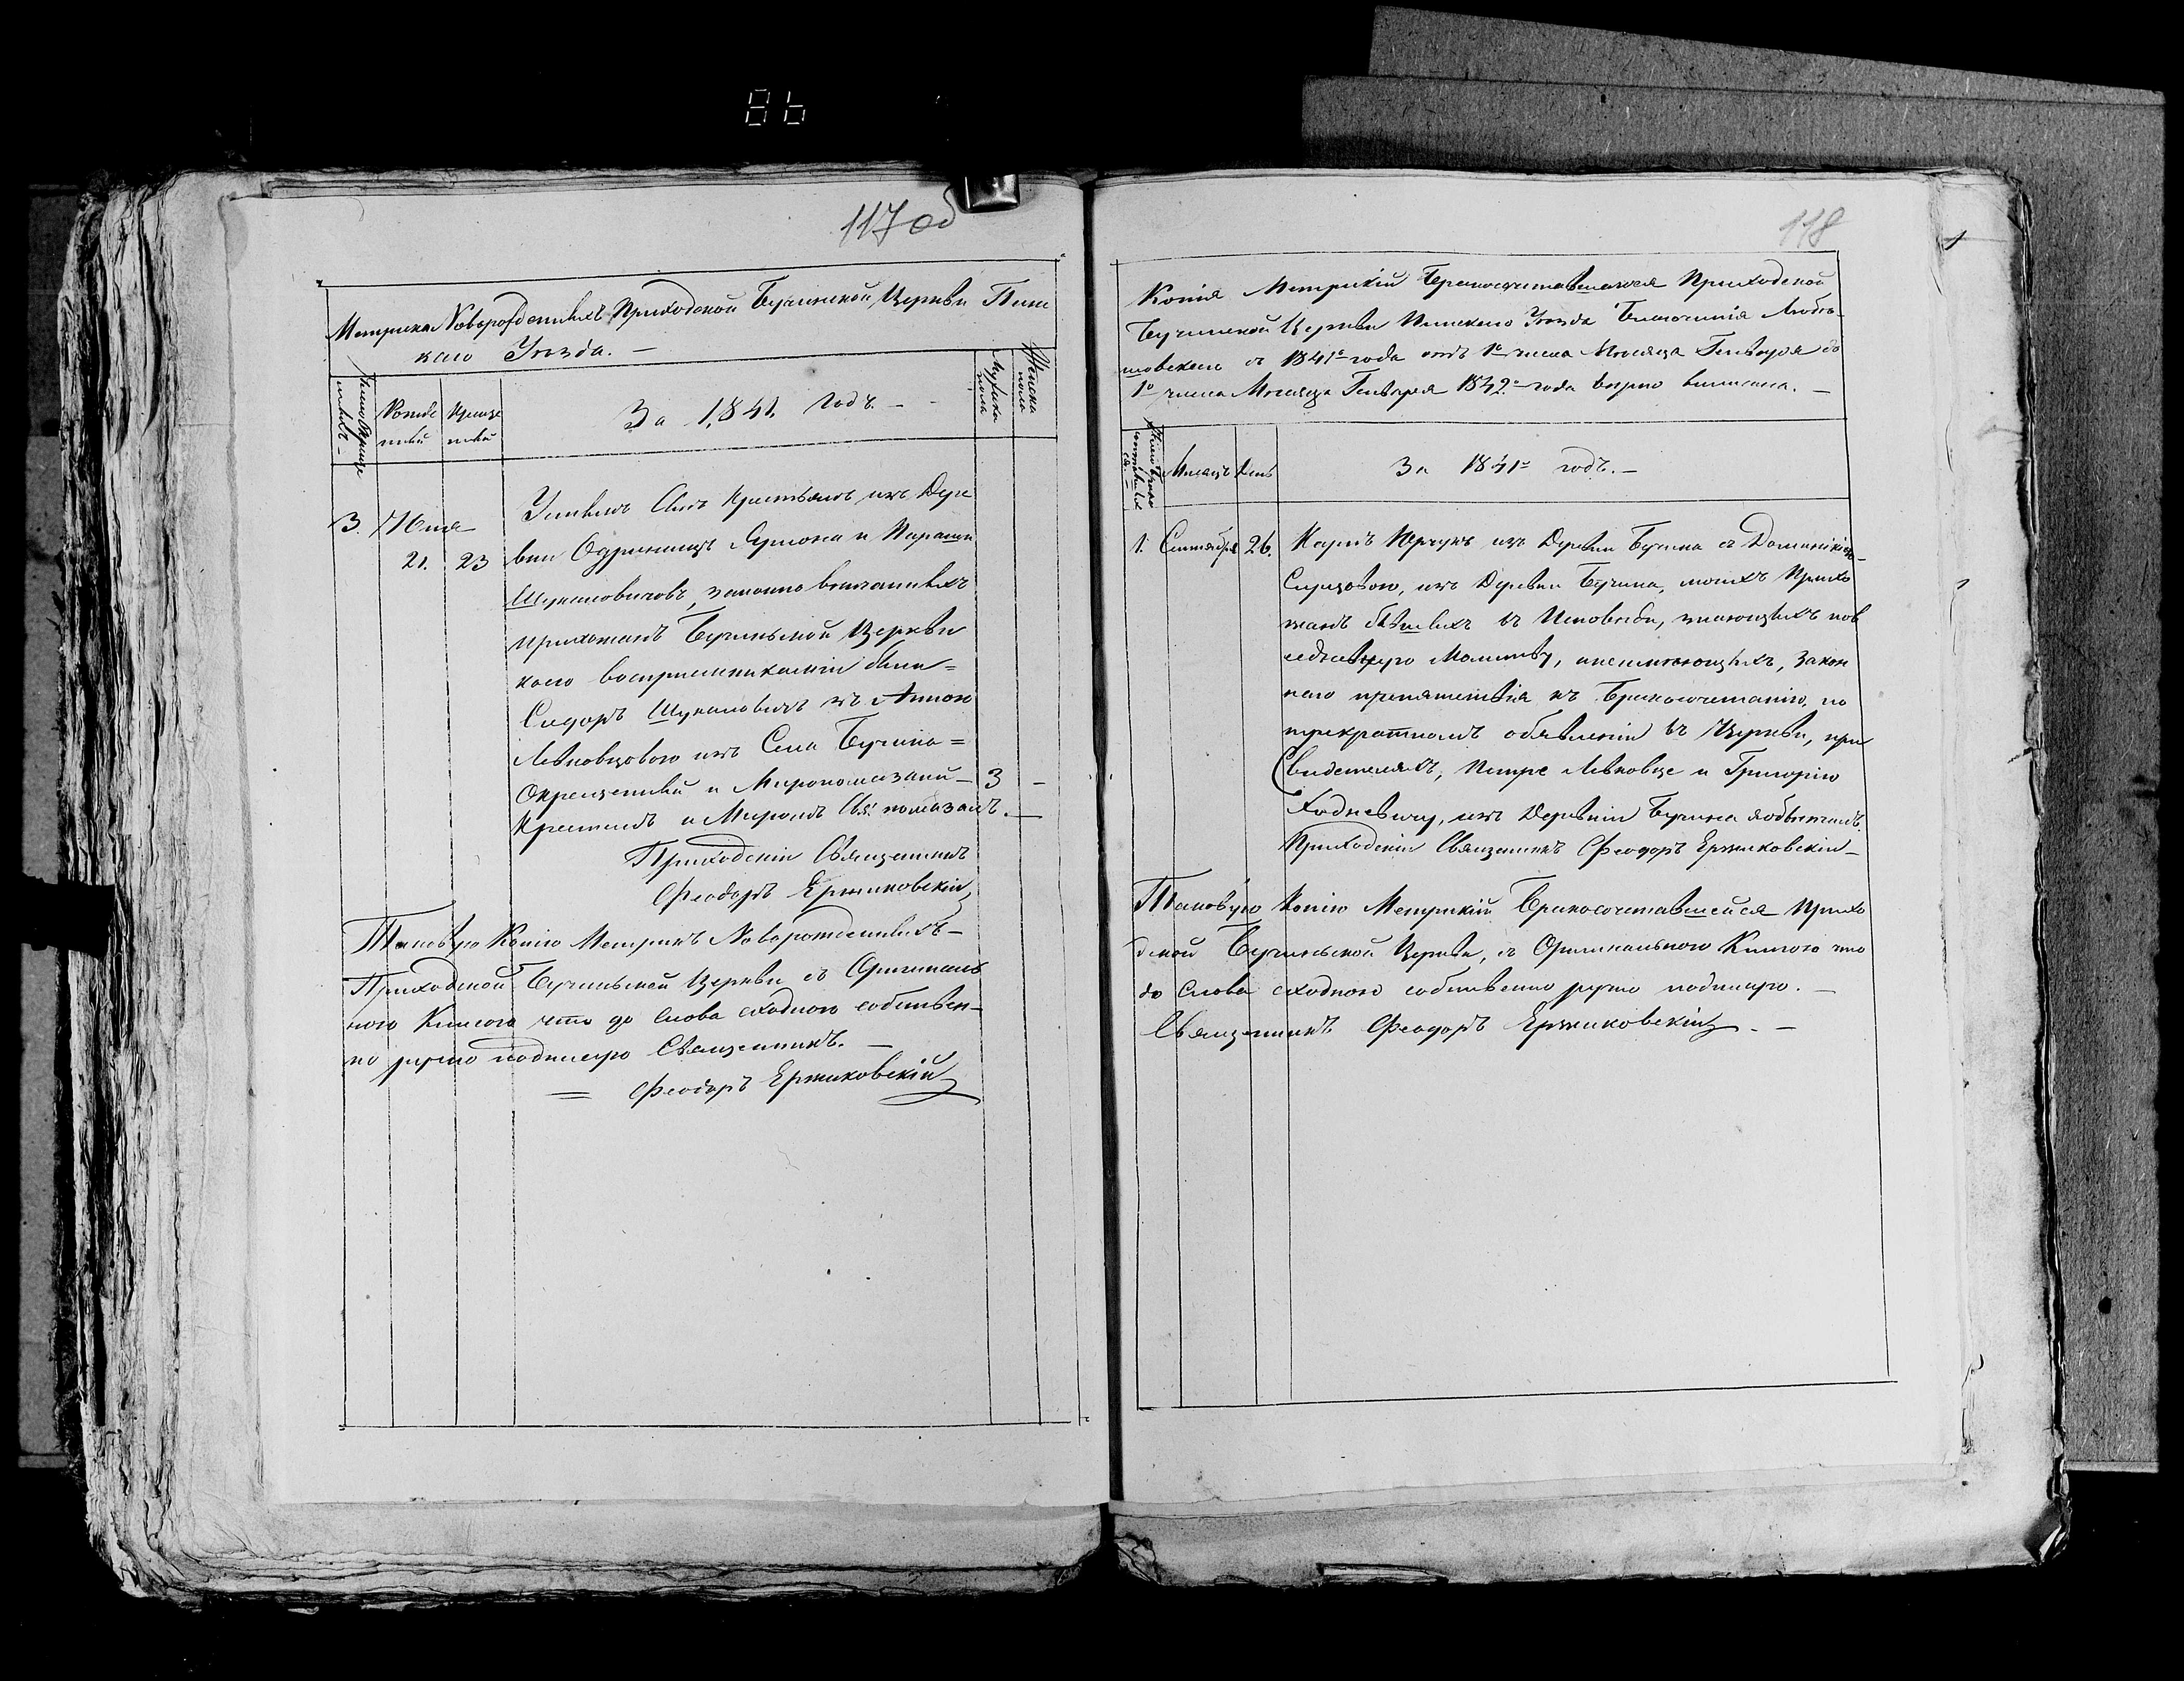 86
117 об
Метрика Новорожденныхъ Приходской Бучинской Церкви Пинс
каго Уѣзда. —
Рожде
ный
Креще
ный
За 1841. Годъ. —
Мужска
пола
Женска
пола
3. Июля
21. 23
Сынъ Крестьянъ изъ Дере
вни Одрижинъ и Параски
Шукаловичовъ, законно вѣнчанныхъ
прихожанъ Бучинской Церкви
коего воспріемниками были =
Сидоръ Шукаловичъ зъ
Левковцовою изъ Села Бучина =
Окрещенный и Миропомазаный — 3 —
Крестилъ и Миромъ Св: помазалъ. —
Приходскій Священникъ
Феодоръ Ержиковскій
Таковую Копію Метрикъ Новорожденныхъ —
Приходской Бучинской Церкви съ Оригиналь
ною Книгою что до слова сходною собствен-
но ручно подписую Священникъ. —
= Феодоръ Ержиковскій
118
Копія Метрикій Бракосочетавшихся Приходской
Бучинской Церкви Пинскаго Уѣзда Благочинія Любѣ-
шовскаго съ 1841го года отъ 1го числа Мѣсяца Генваря до
1о числа Мѣсяца Генваря 1842о года вѣрно выписана. —
Мѣсяцъ День
За 1841го годъ. —
1. Сентября 26.
изъ Деревни Бучина съ
изъ Деревни Бучина, моихъ Прихо
жанъ бывшихъ въ Исповѣди, знающихъ пов
седневную Молитву, инеимѣющихъ, закон
наго препятствія къ Бракосочетанію, по
трекратномъ объявленіи въ Церкви, при
Свидетеляхъ, Петре Левковце и Григорію
Ходневичу, изъ Деревни Бучина
Приходскій Священникъ Феодоръ Ержиковскій —
Таковую Копію Метрикій Бракосочетавшейся Прихо
дской Бучинской Церкви, съ Оригинальною Книгою что
до слова сходною собственно ручно подписую. —
Священникъ Феодоръ Ержиковскій. —